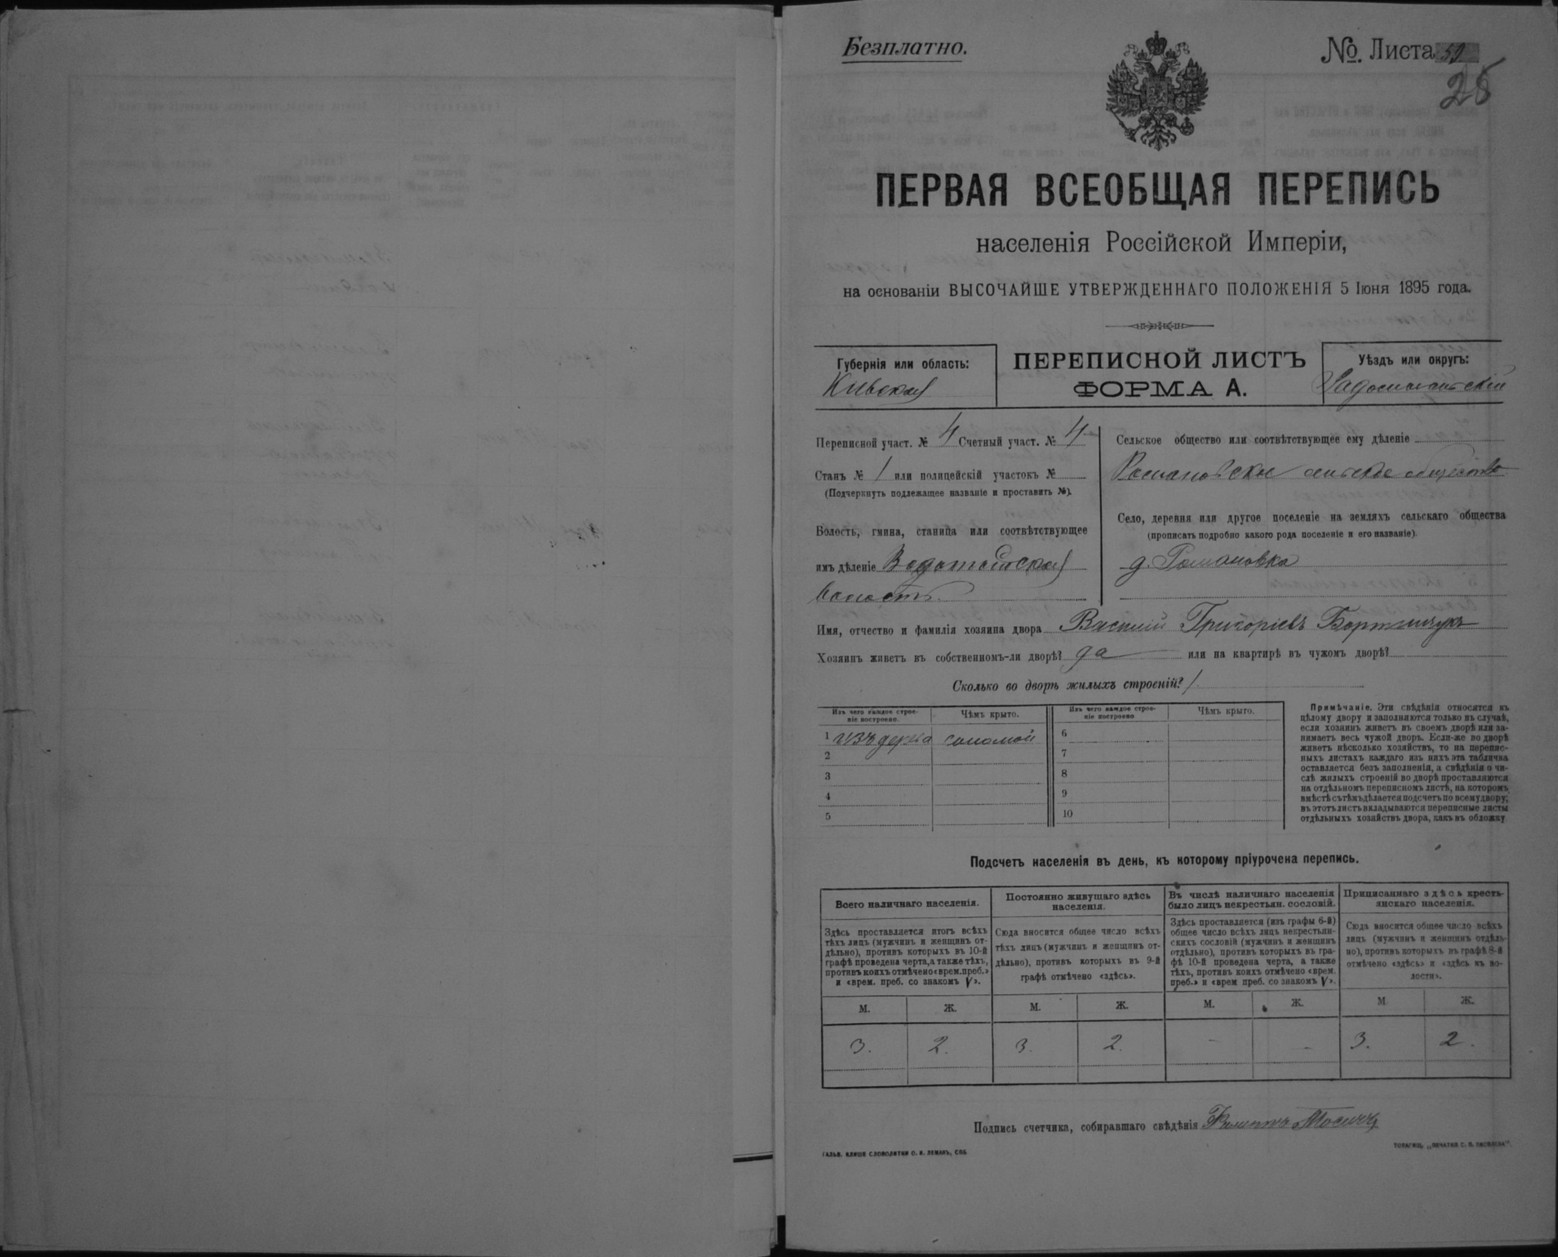 Безплатно.
№. Листа 59
28
ПЕРВАЯ ВСЕОБЩАЯ ПЕРЕПИСЬ
населенія Россійской Имперіи,
на основаніи ВЫСОЧАЙШЕ УТВЕРЖДЕННАГО ПОЛОЖЕНІЯ 5 Іюня 1895 года.
Губернія или область:
Кіевская
ПЕРЕПИСНОЙ ЛИСТЪ
ФОРМА А.
Уѣздъ или округъ:
Радомысльскій
Переписной участ. № 4 Счетный участ. № 4
Станъ № 1 или полицейскій участокъ №
(Подчеркнуть подлежащее названіе и проставить №).
Волость, гмина, станица или соотвѣтствующее
имъ дѣленіе Водотыйская
волость.
Сельское общество или соотвѣтствующее ему дѣленіе
Романовское сельское общество
Село, деревня или другое поселеніе на земляхъ сельскаго общества
(прописать подробно какого рода поселеніе и его названіе)
д. Романовка
Имя, отчество и фамилія хозяина двора Василій Григоріевъ
Хозяинъ живетъ въ собственномъ-ли дворѣ? да или на квартирѣ въ чужомъ дворѣ?
Сколько во дворѣ жилыхъ строеній? 1
Изъ чего каждое строе-
ніе построено.
Чѣмъ крыто.
Изъ чего каждое строе-
ніе построено
Чѣмъ крыто.
1 изъ дерева соломой
2
3
4
5
6
7
8
9
10
Примѣчаніе. Эти свѣдѣнія относятся къ
цѣлому двору и заполняются только въ случаѣ,
если хозяинъ живетъ въ своемъ дворѣ или за-
нимаетъ весь чужой дворъ. Если-же во дворѣ
живетъ нѣсколько хозяйствъ, то на перепис-
ныхъ листахъ каждаго изъ нихъ эта табличка
оставляется безъ заполненія, а свѣдѣнія о чи-
слѣ жилыхъ строеній во дворѣ проставляются
на отдѣльномъ переписномъ листѣ, на которомъ
вмѣстѣ съ тѣмъ дѣлается подсчетъ по всему двору;
въ этотъ листъ вкладываются переписные листы
отдѣльныхъ хозяйствъ двора, какъ въ обложку.
Подсчетъ населенія въ день, къ которому пріурочена перепись.
Всего наличнаго населенія.
Здѣсь проставляется итогъ всѣхъ
тѣхъ лицъ (мужчинъ и женщинъ от-
дѣльно), противъ которыхъ въ 10-й
графѣ проведена черта, а также тѣхъ,
противъ коихъ отмѣчено «врем. преб.»
и «врем. преб. со знакомъ V».
Постоянно живущаго здѣсь
населенія.
Сюда вносится общее число всѣхъ
тѣхъ лицъ (мужчинъ и женщинъ от-
дѣльно), противъ которыхъ въ 9-й
графѣ отмѣчено «здѣсь».
Въ числѣ наличнаго населенія
было лицъ некрестьян. сословій.
Здѣсь проставляется (изъ графы 6-й)
общее число всѣхъ лицъ некрестьян-
скихъ сословій (мужчинъ и женщинъ
отдѣльно), противъ которыхъ въ гра-
фѣ 10-й проведена черта, а также
тѣхъ, противъ коихъ отмѣчено «врем.
преб.» и «врем преб. со знакомъ V».
Приписаннаго здѣсь кресть-
янскаго населенія.
Сюда вносится общее число всѣхъ
лицъ (мужчинъ и женщинъ отдѣль-
но), противъ которыхъ въ графѣ 8-й
отмѣчено «здѣсь» и «здѣсь въ во-
лости».
М. Ж. М. Ж. М. Ж. М Ж.
3. 2. 3. 2. - - 3. 2.
Подпись счетчика, собиравшаго свѣдѣнія
ГАЛЬВ. КЛИШЕ СЛОВОЛИТНИ О. И. ЛЕМАНЪ, СПБ.